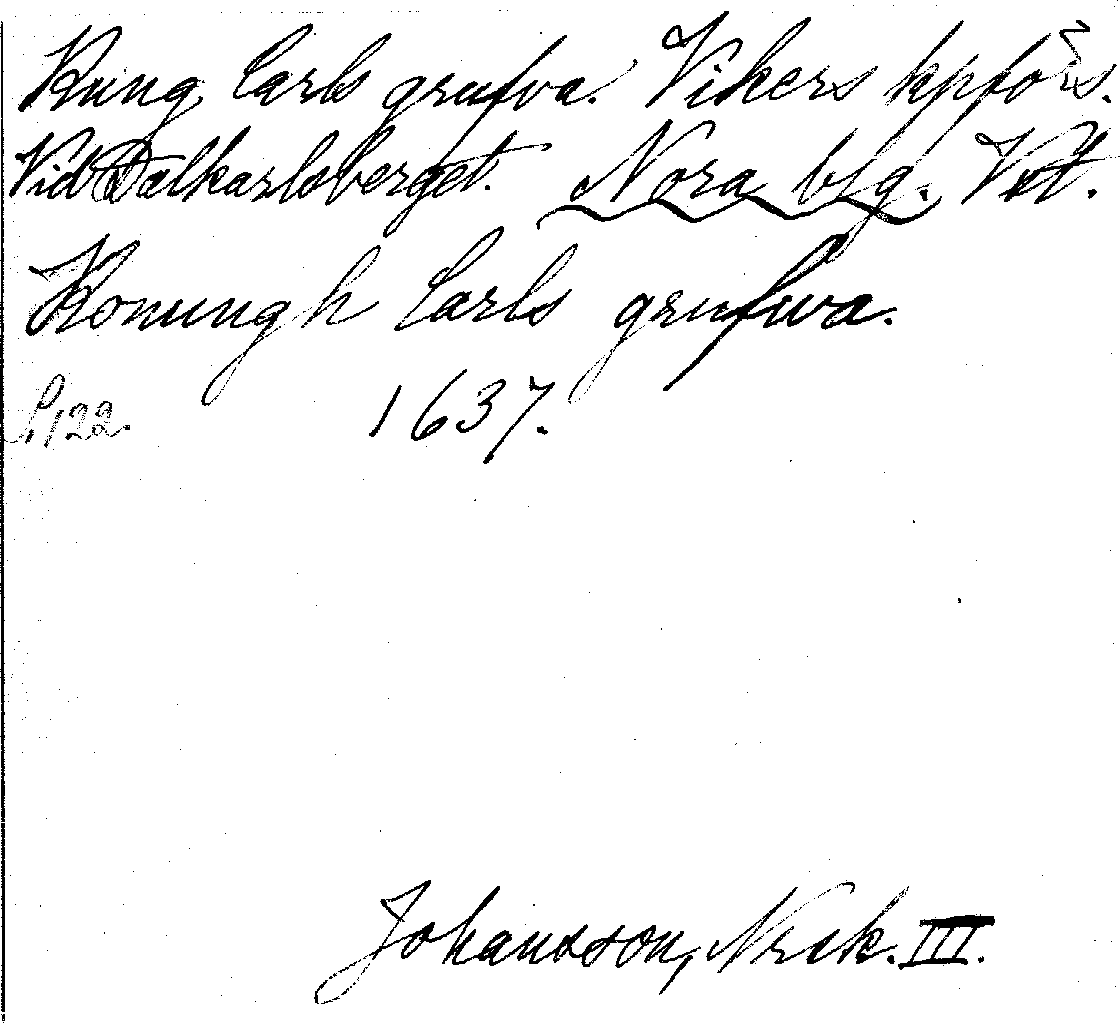 Kung Carls grufva. Vikers kpförs.
Vid Dalkarlsberget. Nora blg. Vst.
Konungh Carls grufwa.
S. 122. 1637.
Johansson, Nrck. III.